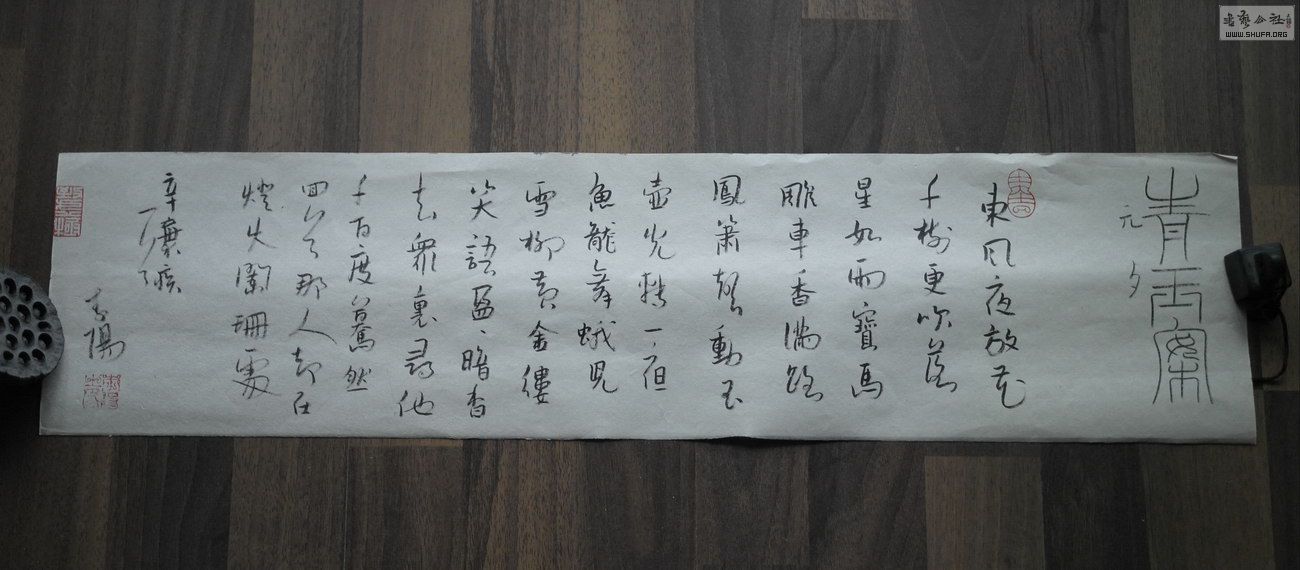 青玉案
元夕
東風夜放花
千樹更吹落
星如雨寶馬
雕車香滿路
鳳簫聲動玉
壺光轉一
魚龍舞蛾兒
雪柳黃金縷
笑語盈、暗香
去衆裏尋他
千百度驀然
回首那人却在
燈火闌珊處
辛棄疾
陽
书艺公社
WWW.SHUFA.ORG